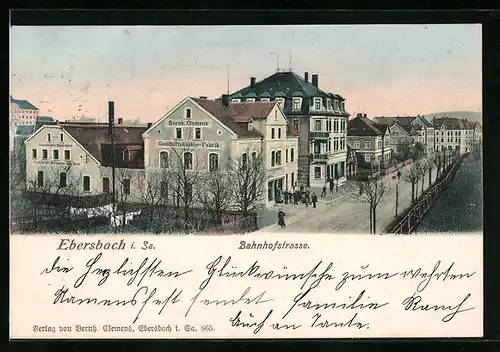 Bernh. Clemens
Geschäftsbücher-Fabrik
Ebersbach i. Sa. Bahnhofstrasse.
die Herzlichsten Glückwünsche zum
Namensfest sendet Familie Rauch
Auch an Tante.
Verlag von Bernh. Clemens, Ebersbach i. Sa. 865.